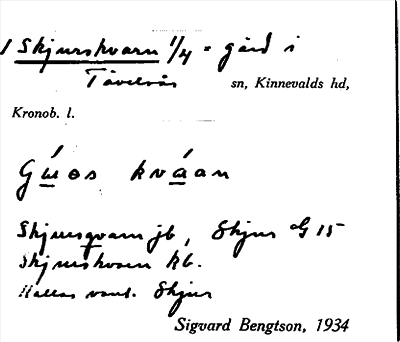 1 Skjurskvarn 1/4 = gård i
Tävelsås sn, Kinnevalds hd,
Kronob. l.
Gúos kváan
Skjursqvarn jb, Skjur G 15
Skjurskvarn kb.
Kallas vanl. Skjur
Sigvard Bengtson, 1934